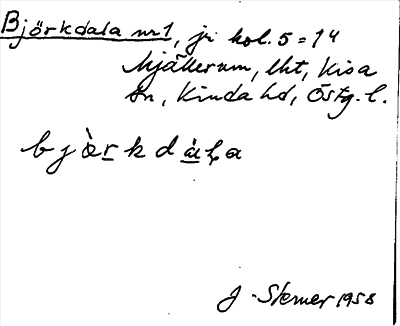 Björkdala nr 1, jr kol. 5 = 14
Mjällerum, lht, Kisa
sn, Kinda hd, Östg. l.
b j ö̀ r k d à l a
J. Stemer 1958